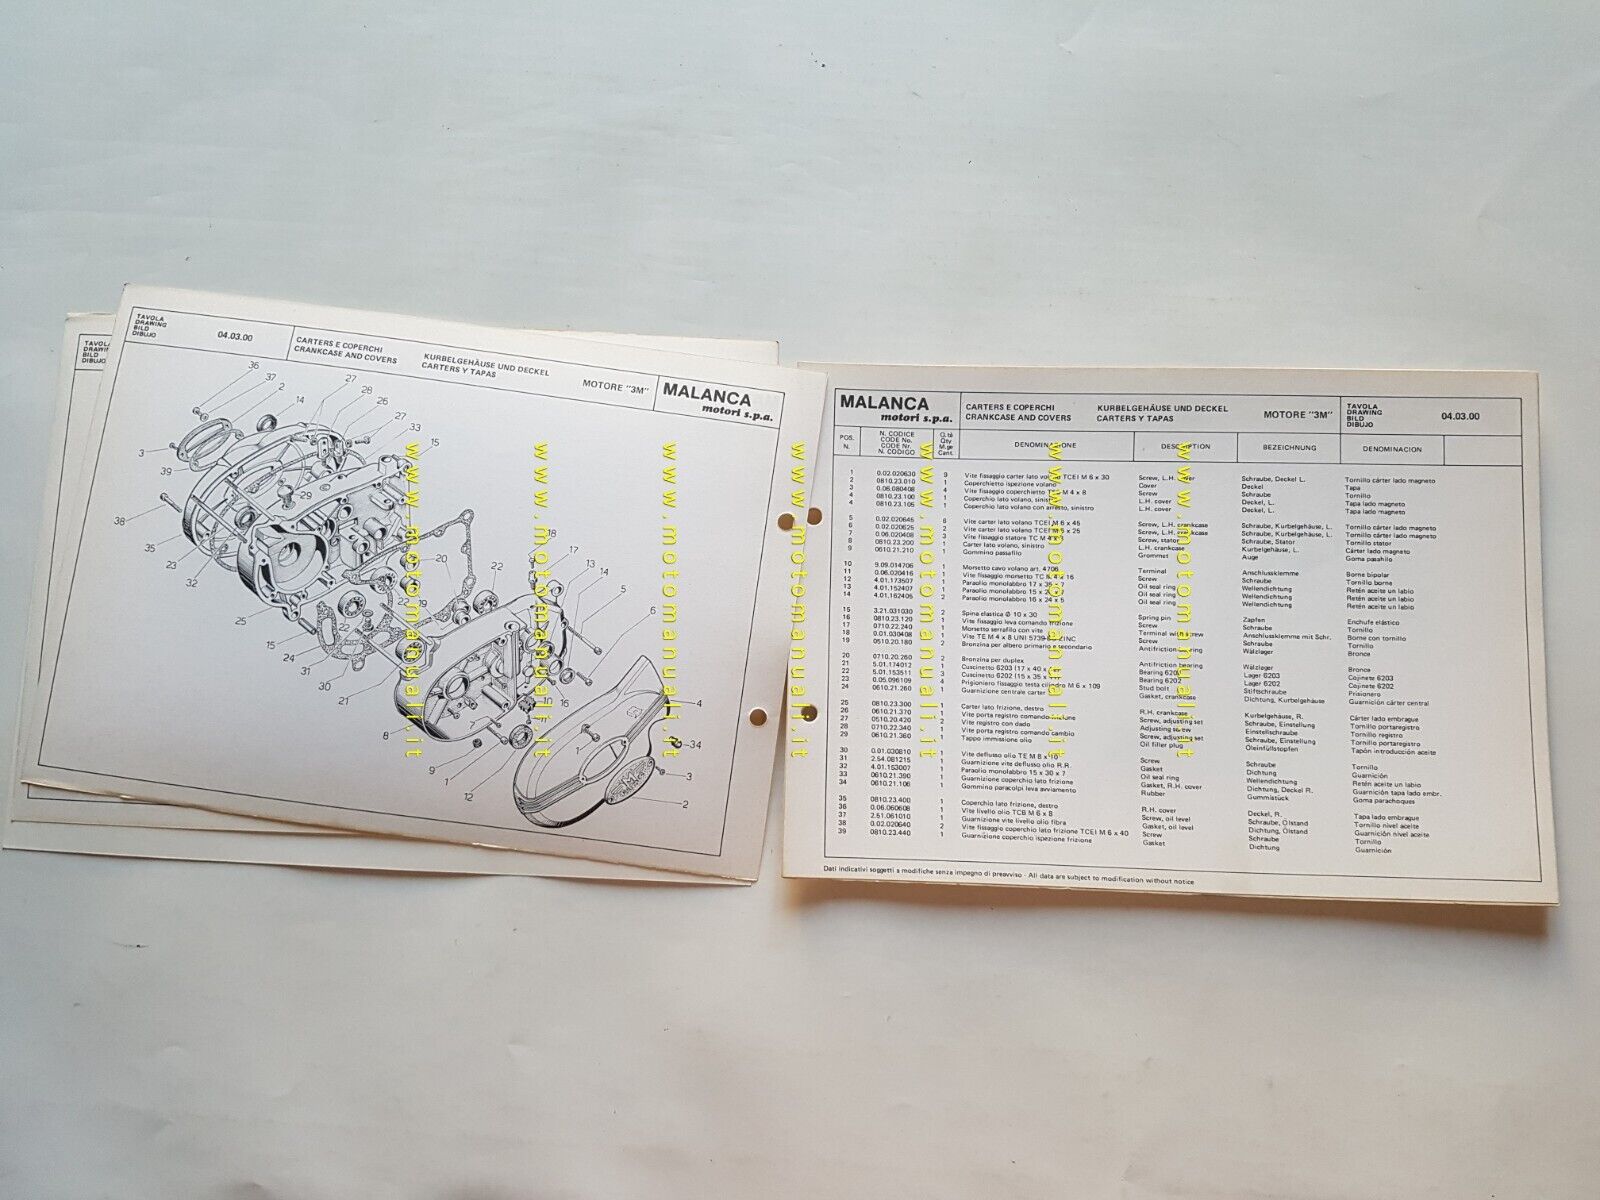 TAVOLA
DRAWING
BILD
DIBUJO
TAVOLA
DRAWING
BILD
DIBUJO
04.03.00
CARTERS E COPERCHI
CRANKCASE AND COVERS
KURBELGEHÄUSE UND DECKEL
CARTERS Y TAPAS
MOTORE "3M"
MALANCA
motori s.p.a.
www.motomanuali.it
www.motomanuali.it
www.motomanuali.it
www.motomanuali.it
www.motomanuali.it
www.motomanuali.it
www.motomanuali.it
MALANCA
motori s.p.a.
CARTERS E COPERCHI
CRANKCASE AND COVERS
KURBELGEHÄUSE UND DECKEL
CARTERS Y TAPAS
MOTORE "3M"
TAVOLA
DRAWING
BILD
DIBUJO
04.03.00
POS. N.
N. CODICE
CODE No.
CODE Nr.
N. CODIGO
Q.tà
Qty.
M.ge
Cant.
DENOMINAZIONE DESCRIPTION BEZEICHNUNG DENOMINACION
1 0.02.020630 9 Vite fissaggio carter lato volano TCEI M 6 x 30 Screw, L.H. cover Schraube, Deckel L. Tornillo cárter lado magneto
2 0810.23.010 1 Coperchietto ispezione volano Cover Deckel Tapa
3 0.06.080408 4 Vite fissaggio coperchietto M 4 x 8 Screw Schraube Tornillo
4 0810.23.100 1 Coperchio lato volano, sinistro L.H. cover Deckel, L. Tapa lado magneto
4 0810.23.105 1 Coperchio lato volano con arresto, sinistro L.H. cover Deckel, L. Tapa lado magneto
5 0.02.020645 6 Vite carter lato volano TCEI M 6 x 45 Screw, L.H. crankcase Schraube, Kurbelgehäuse, L. Tornillo cárter lado magneto
6 0.02.020625 2 Vite carter lato volano TCEI M 6 x 25 Screw, L.H. crankcase Schraube, Kurbelgehäuse, L. Tornillo cárter lado magneto
7 0.06.020408 3 Vite fissaggio statore TC M 4 x Screw, stator Schraube, Stator Tornillo stator
8 0810.23.200 1 Carter lato volano, sinistro L.H. crankcase Kurbelgehäuse, L. Cárter lado magneto
9 0610.21.210 1 Gommino passafilo Grommet Auge Goma pasahilo
10 9.09.014706 1 Morsetto cavo volano art. 4706 Terminal Anschlussklemme Borne bipolar
11 0.06.020416 1 Vite fissaggio morsetto TC M 4 x 16 Screw Schraube Tornillo borne
12 4.01.173507 1 Paraolio monolabbro 17 x 35 x 7 Oil seal ring Wellendichtung Retén aceite un labio
13 4.01.152407 1 Paraolio monolabbro 15 x 24 x 7 Oil seal ring Wellendichtung Retén aceite un labio
14 4.01.162405 2 Paraolio monolabbro 16 x 24 x 5 Oil seal ring Wellendichtung Retén aceite un labio
15 3.21.031030 2 Spina elastica Ø 10 x 30 Spring pin Zapfen Enchufe elástico
16 0810.23.120 1 Vite fissaggio leva comando frizione Screw Schraube Tornillo
17 0710.22.240 1 Morsetto serrafilo con vite Terminal with screw Anschlussklemme mit Schr. Borne con tornillo
18 0.01.030408 1 Vite TE M 4 x 8 UNI 5739 ZINC Screw Schraube Tornillo
19 0510.20.180 2 Bronzina per albero primario e secondario Antifriction bearing Wälzlager Bronce
20 0710.20.260 2 Bronzina per duplex Antifriction bearing Wälzlager Bronce
21 5.01.174012 1 Cuscinetto 6203 (17 x 40 x Bearing 6203 Lager 6203 Cojinete 6203
22 5.01.153511 3 Cuscinetto 6202 (15 x 35 x Bearing 6202 Lager 6202 Cojinete 6202
23 0.05.096109 4 Prigioniero fissaggio testa cilindro M 6 x 109 Stud bolt Stiftschraube Prisionero
24 0610.21.260 1 Guarnizione centrale carter Gasket, crankcase Dichtung, Kurbelgehäuse Guarnición cárter central
25 0810.23.300 1 Carter lato frizione, destro R.H. crankcase Kurbelgehäuse, R. Cárter lado embrague
26 0610.21.370 1 Vite porta registro comando frizione Screw, adjusting set Schraube, Einstellung Tornillo portaregistro
27 0510.20.420 2 Vite registro con dado Adjusting screw Einstellschraube Tornillo registro
28 0710.22.340 1 Vite porta registro comando cambio Screw, adjusting set Schraube, Einstellung Tornillo portaregistro
29 0610.21.360 1 Tappo immissione olio Oil filler plug Öleinfüllstopfen Tapón introducción aceite
30 0.01.030810 1 Vite deflusso olio TE M 8 x 10 Screw Schraube Tornillo
31 2.54.081215 1 Guarnizione vite deflusso olio R.R. Gasket Dichtung Guarnición
32 4.01.153007 1 Paraolio monolabbro 15 x 30 x 7 Oil seal ring Wellendichtung Retén aceite un labio
33 0610.21.390 1 Guarnizione coperchio lato frizione Gasket, R.H. cover Dichtung, Deckel R. Guarnición tapa lado embr.
34 0610.21.106 1 Gommino paracolpi leva avviamento Rubber Gummistück Goma parachoques
35 0810.23.400 1 Coperchio lato frizione, destro R.H. cover Deckel, R. Tapa lado embrague
36 0.06.060608 1 Vite livello olio TCB M 6 x 8 Screw, oil level Schraube, Ölstand Tornillo nivel aceite
37 2.51.061010 1 Guarnizione vite livello olio fibra Gasket, oil level Dichtung, Ölstand Guarnición nivel aceite
38 0.02.020640 2 Vite fissaggio coperchio lato frizione TCEI M 6 x 40 Screw Schraube Tornillo
39 0810.23.440 1 Guarnizione coperchio ispezione frizione Gasket Dichtung Guarnición
Dati indicativi soggetti a modifiche senza impegno di preavviso - All data are subject to modification without notice
36
37
2
14
27
28
26
27
33
15
3
39
29
38
35
23
32
25
15
24
31
30
22
21
22
19
20
22
18
17
13
14
5
6
8
7
9
1
12
10
15
16
1
4
34
3
2